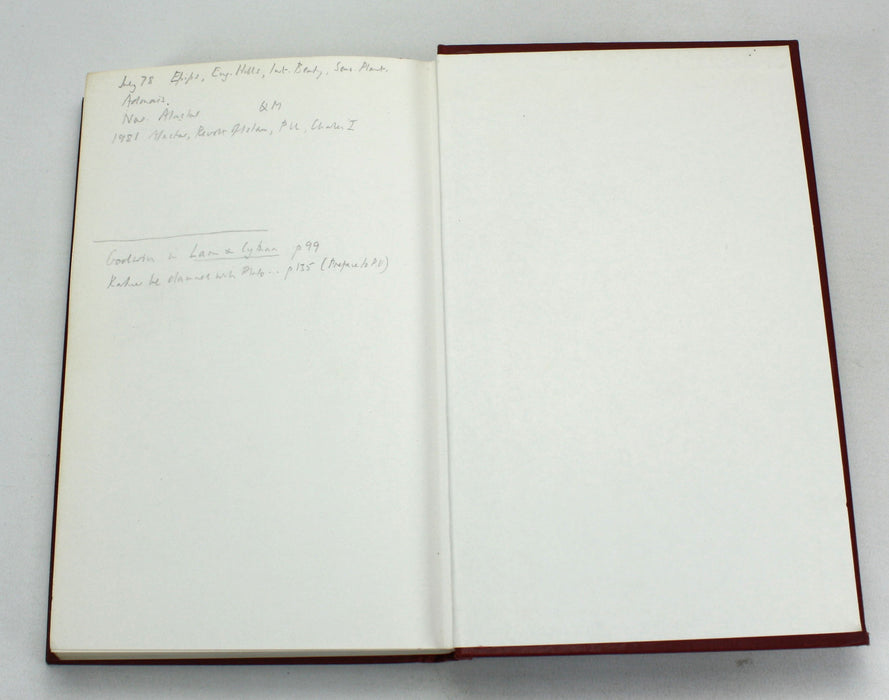 July 78 Epips, Eug. Hills, Int. Beauty, Sens. Plant,
Adonais.
Nov. Alastor Q M
1981 Alastor, Revolt of Islam, P U, Charles I
Godwin in Laon & Cythna p 99
Rather be damned with Plato .. p 135 (Preface to P.U)